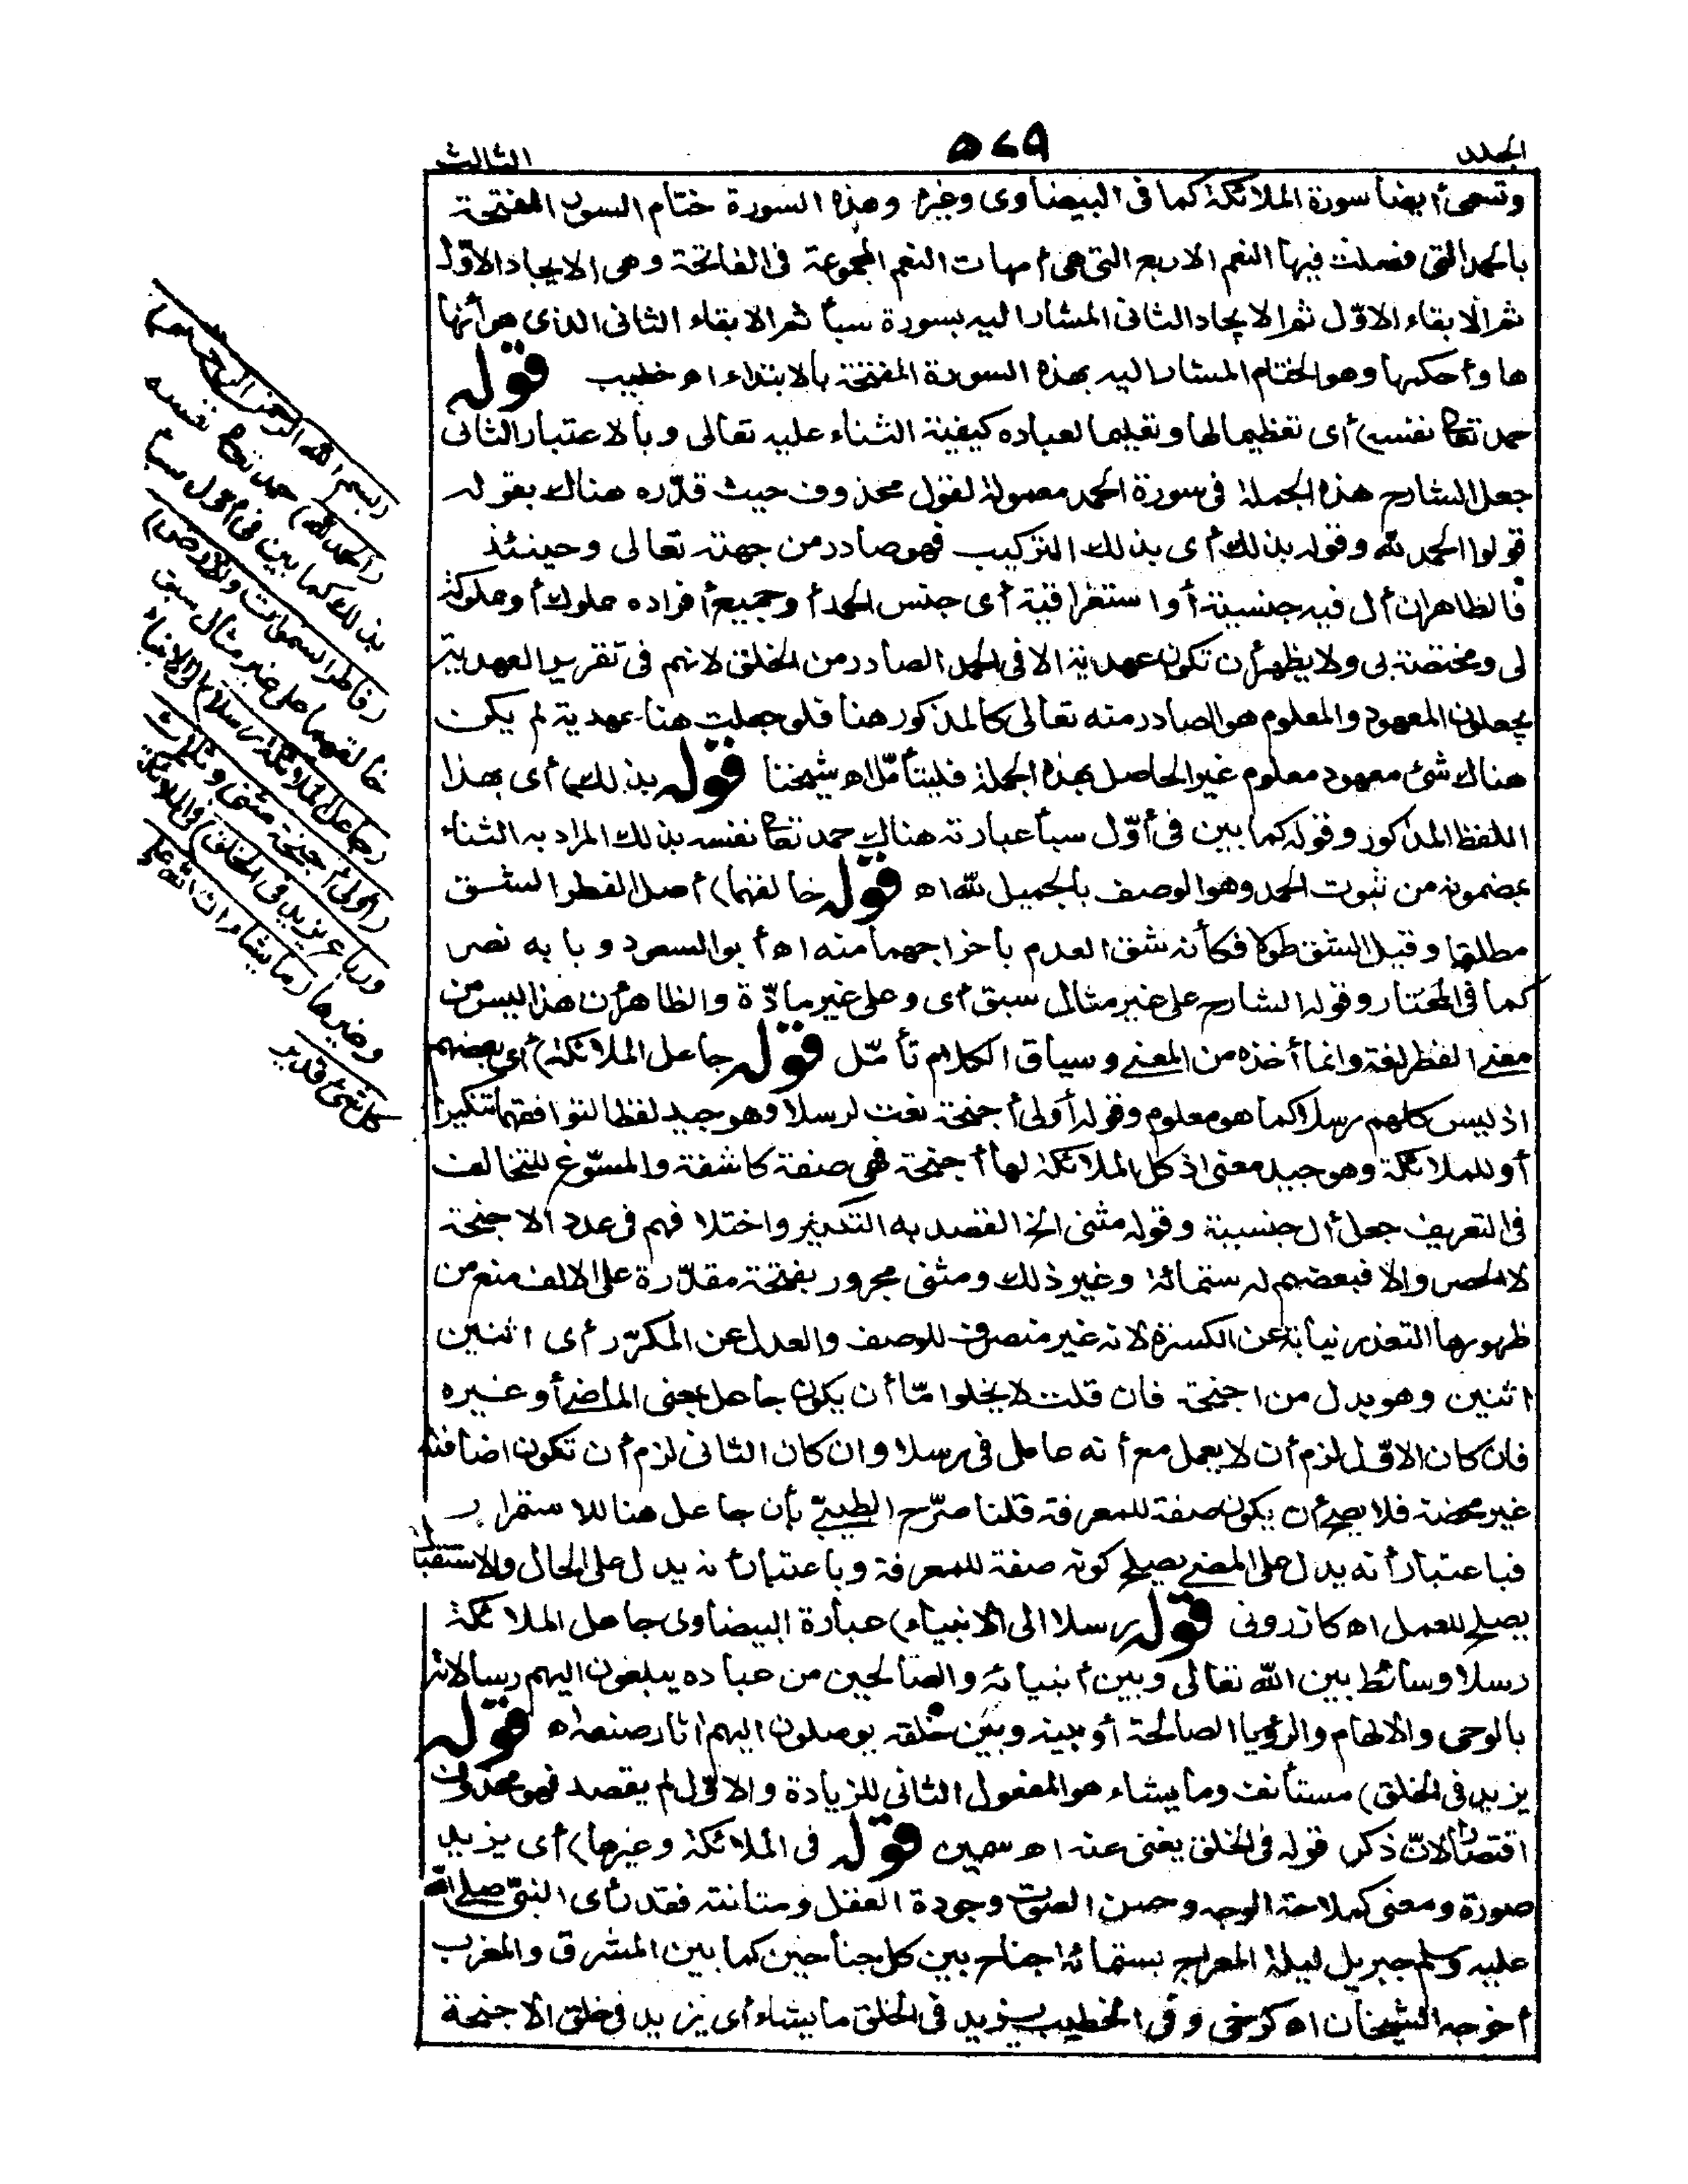 الجلد
٥٤٩
الثالث
وتسمى أيضا سورة الملائكة كما فى البيضاوى وغيره وهذه السورة ختام السور المفتتحة
بالحمد التى فصلت فيها النعم الاربع التى هى أمهات النعم المجموعة فى الفاتحة وهى الايجاد الاوّل
ثم الابقاء الاوّل ثم الايجاد الثانى المشار اليه بسورة سبأ ثم الابقاء الثانى الذى هو أنهاها
ها وأحكمها وهو الختام المشار اليه بهذه السورة المفتتحة بالابتداء اه خطيب قوله
حمد تعالى نفسه) أى تعظيما لها وتعليما لعباده كيفية الثناء عليه تعالى وبالاعتبار الثانى
جعل الشارح هذه الجملة فى سورة الحمد معمولة لقول محذوف حيث قدّره هناك بقوله
قولوا الحمد لله وقوله بذلك أى بذلك التركيب فهو صادر من جهته تعالى وحينئذ
فالظاهر ان أل فيه جنسية أو استغراقية أى جنس الحمد أو جميع أفراده مملوك أو مملوكة
لى ومختصة بى ولا يظهر أن تكون عهدية الا فى الحمد الصادر من الخلق لانهم فى تقرير العهدية
يجعلون المعهود والمعلوم هو الصادر منه تعالى كالمذكور هنا فلو جعلت هنا عهدية لم يكن
هناك شئ معهود معلوم غير الحاصل بهذه الجملة فليتأمّل اه شيخنا قوله بذلك) أى بهذا
اللفظ المذكور وقوله كما بين فى أوّل سبأ عبارته هناك حمد تعالى نفسه بذلك المراد به الثناء
بمضمونه من ثبوت الحمد وهو الوصف بالجميل لله اه قوله خالقهما) أصل الفطر الشق
مطلقا وقيل الشق طولا فكأنه شق العدم باخراجهما منه اه أبو السعود وبابه نصر
كما فى المختار وقوله الشارح على غير مثال سبق أى وعلى غير مادّة والظاهر أن هذا ليس من
معنى الفطر لغة وانما أخذه من المعنى وسياق الكلام تأمّل قوله جاعل الملائكة) أى بعضهم
اذ ليس كلهم رسلا كما هو معلوم وقوله أولى أجنحة نعت لرسلا وهو جيد لفظا لتوافقهما تنكيرا
أو للملائكة وهو جيد معنى اذ كل الملائكة لها أجنحة فهى صفة كاشفة والمسوّغ للتخالف
فى التعريف جعل أل جنسية وقوله مثنى الخ القصد به التكثير واختلافهم فى عدد الاجنحة
لا الحصر والا فبعضهم له ستمائة وغير ذلك ومثنى مجرور بفتحة مقدّرة على الالف منع من
ظهورها التعذر نيابة عن الكسرة لانه غير منصرف للوصف والعدل عن المكرّر أى اثنين
اثنين وهو بدل من اجنحة فان قلت لا يخلو امّا أن يكون جاعل بمعنى الماضى أو غيره
فان كان الاوّل لزم أن لا يعمل مع أنه عامل فى رسلا وان كان الثانى لزم أن تكون اضافته
غير محضة فلا يصح أن يكون صفة للمعرفة قلنا صرّح الطيبىّ بأن جاعل هنا للاستمرار
فباعتبار أنه يدل على المضى يصلح كونه صفة للمعرفة وباعتبار أنه يدل على الحال والاستقبال
يصلح للعمل اه كازرونى قوله رسلا الى الانبياء) عبارة البيضاوى جاعل الملائكة
رسلا وسائط بين الله تعالى وبين أنبيائه والصالحين من عباده يبلغون اليهم رسالاته
بالوحى والالهام والرؤيا الصالحة أو بينه وبين خلقه يوصلون اليهم اثار صنعه اه قوله
يزيد فى الخلق) مستأنف وما يشاء هو المفعول الثانى للزيادة والاوّل لم يقصد فهو محذوف
اقتصارا لانّ ذكر قوله فى الخلق يغنى عنه اه سمين قوله فى الملائكة وغيرها) أى يزيد
صورة ومعنى كملاحة الوجه وحسن الصوت وجودة العقل ومتانته فقد رأى النبىّ صلى الله
عليه وسلم جبريل ليلة المعراج بستمائة جناح بين كل جناحين كما بين المشرق والمغرب
أخرجه الشيخان اه كرخى وفى الخطيب يزيد فى الخلق ما يشاء أى يزيد فى خلق الاجنحة
(بسم الله الرحمن الرحيم
(الحمد لله) حمد تعالى نفسه
بذلك كما بين فى أول سبأ
(فاطر السموات والارض)
خالقهما على غير مثال سبق
(جاعل الملائكة رسلا) الى الانبياء
(أولى أجنحة مثنى وثلاث
ورباع يزيد فى الخلق) فى الملائكة
وغيرها (ما يشاء ان الله على
كل شئ قدير